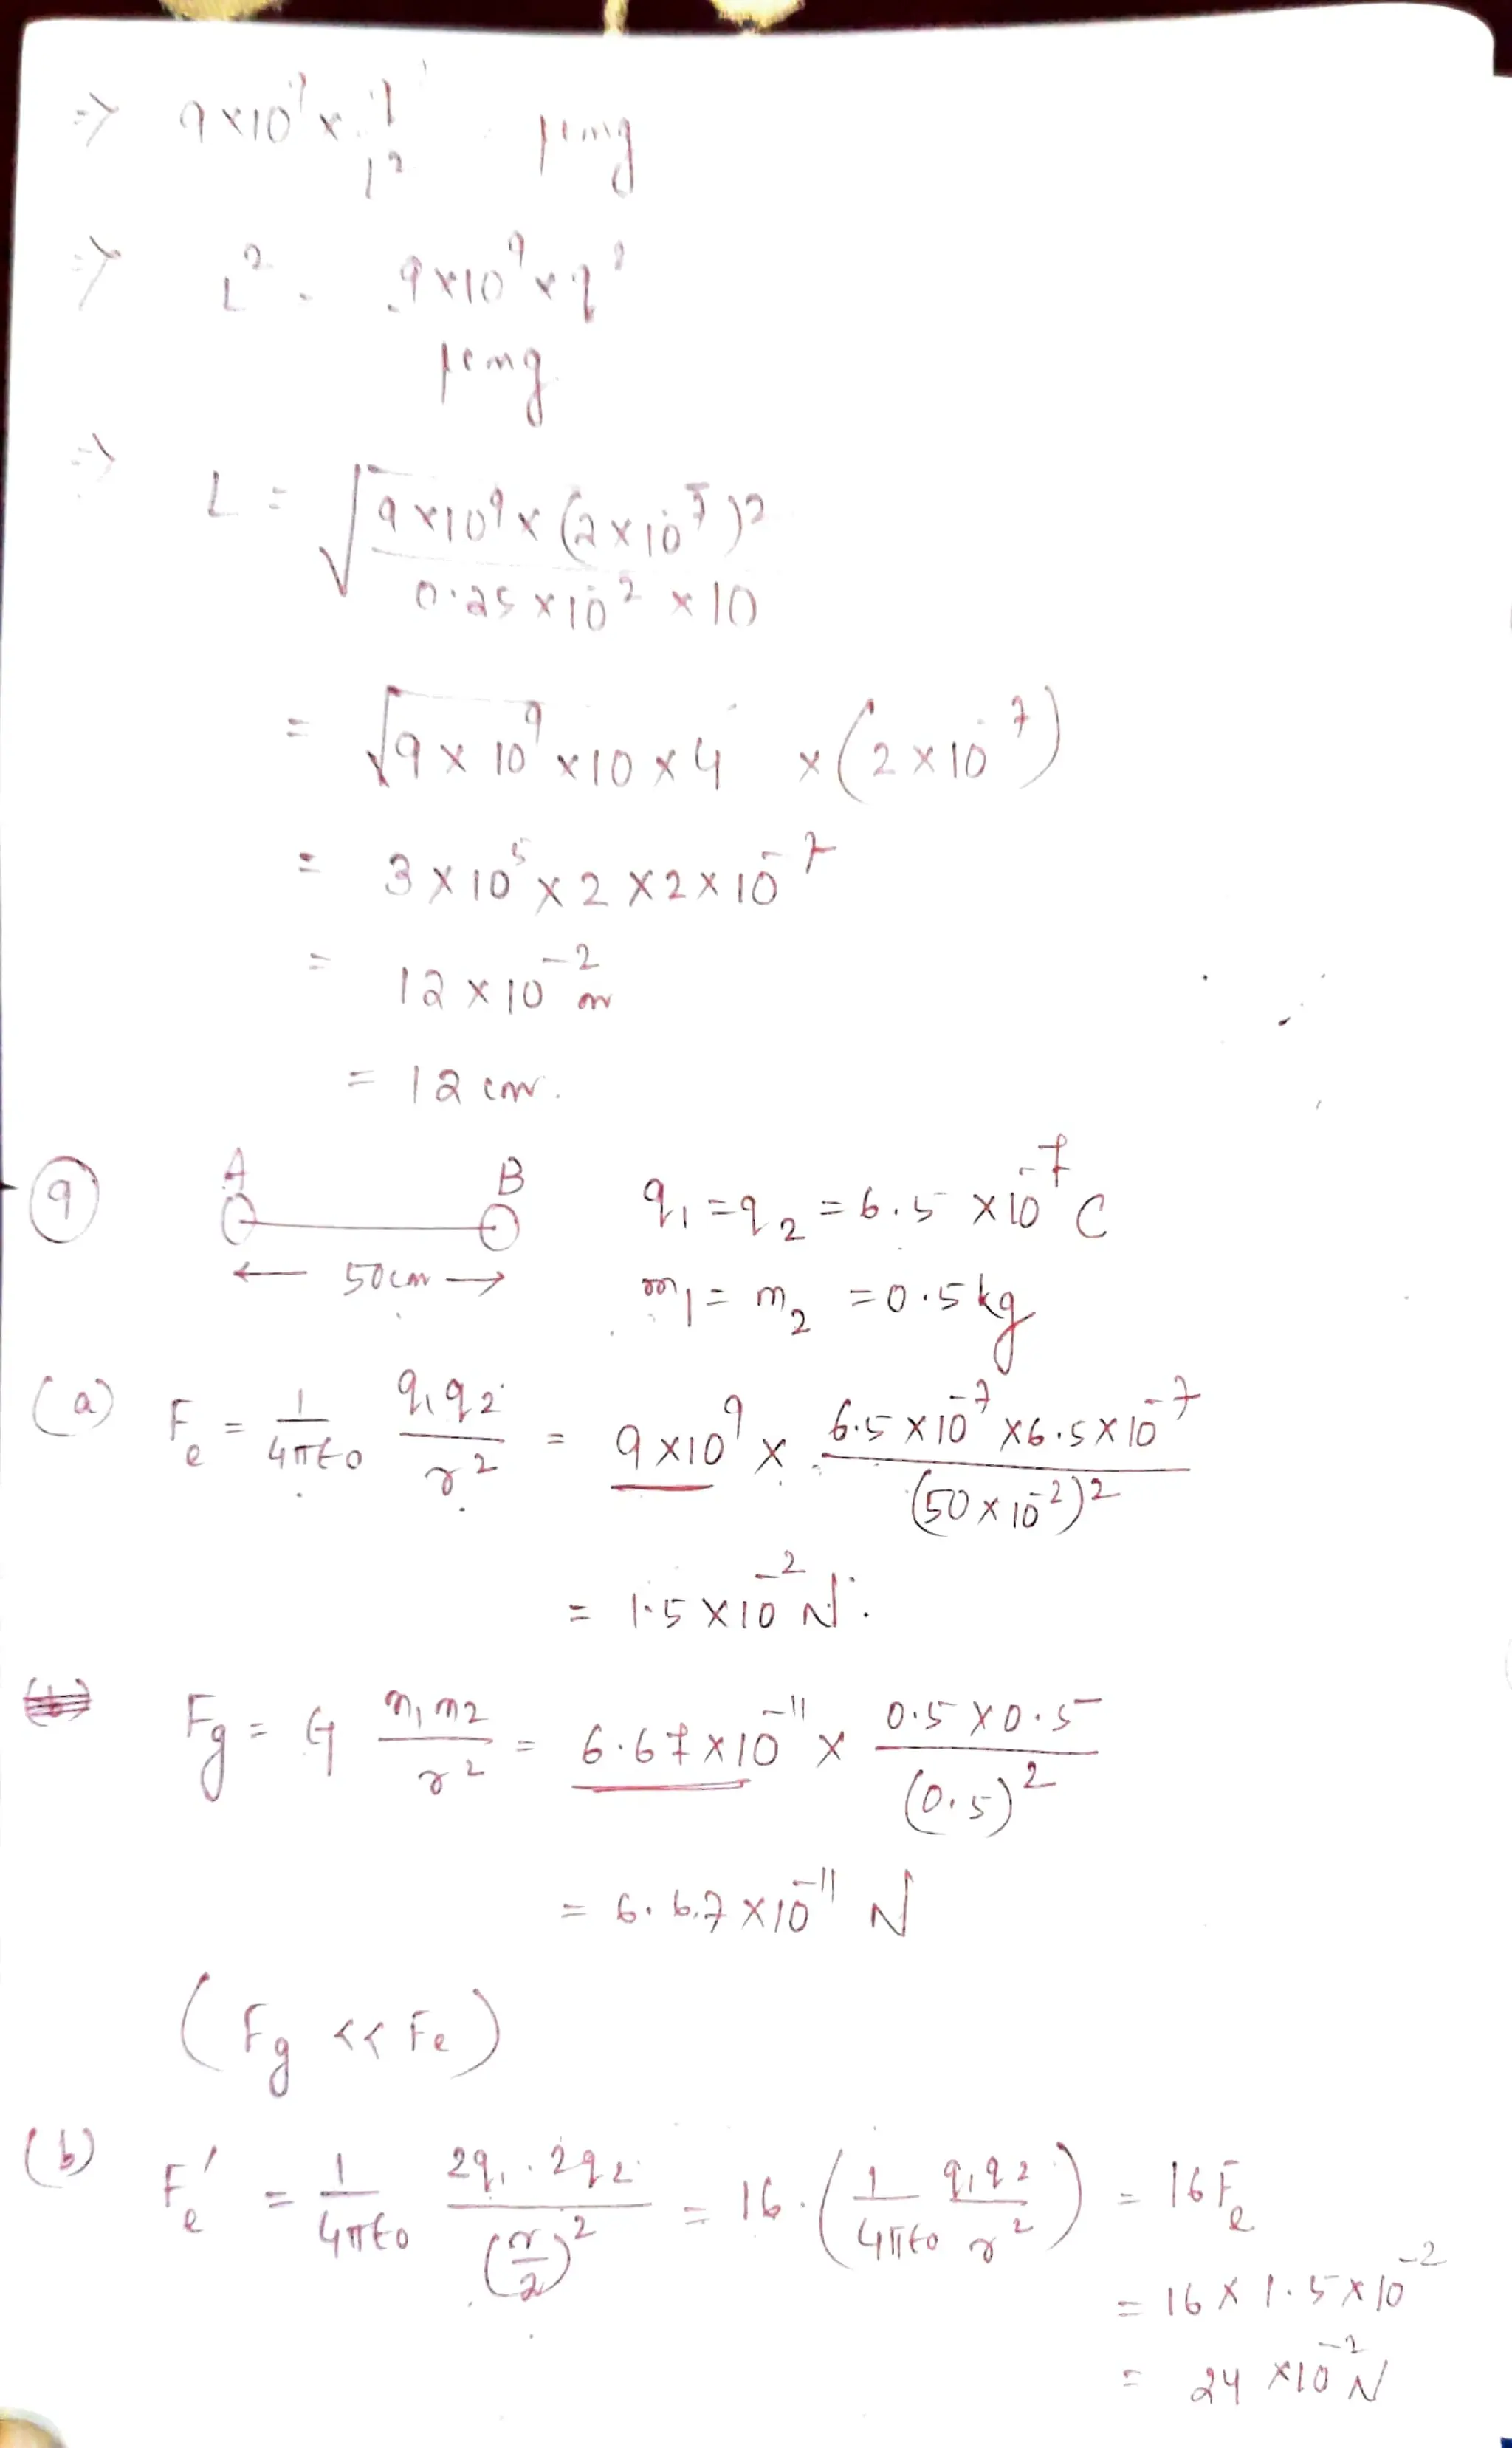 ⇒ 9×10⁹ × q²/L² = μmg
⇒ L² = 9×10⁹ × q² / μmg
⇒ L = √(9×10⁹ × (2×10⁻⁷)² / 0.25×10⁻² ×10)
= √(9×10⁹ ×10×4) × (2×10⁻⁷)
= 3×10⁵ × 2 × 2×10⁻⁷
= 12×10⁻² m
= 12 cm.
(9) A B q₁ = q₂ = 6.5 ×10⁻⁷ C
← 50cm → m₁ = m₂ = 0.5 kg
(a) Fe = 1/4πε₀ q₁q₂/r² = 9×10⁹ × 6.5×10⁻⁷ ×6.5×10⁻⁷/(50×10⁻²)²
= 1.5×10⁻² N.
Fg = G m₁m₂/r² = 6.67×10⁻¹¹ × 0.5×0.5/(0.5)²
= 6.67×10⁻¹¹ N
(Fg << Fe)
(b) Fe' = 1/4πε₀ 2q₁.2q₂/(r/2)² = 16.(1/4πε₀ q₁q₂/r²) = 16Fe
= 16 × 1.5×10⁻²
= 24 ×10⁻² N